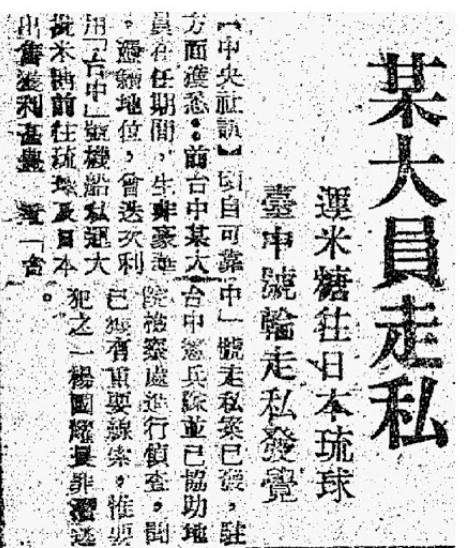 某大員走私
運米糖往日本琉球
臺中號輪走私發覺
【中央社訊】頃自可靠
方面獲悉：前台中某大
員在任期間，生活豪華
，憑藉地位，曾迭次利
用「台中」號機船私運大
批米糖前往琉球及日本
出售獲利甚豐 查「台
中」號走私案已發，駐
台中憲兵隊並已協助地
院檢察處進行偵查，聞
已獲有重要線索，惟要
犯之一楊國耀業潛逃
。